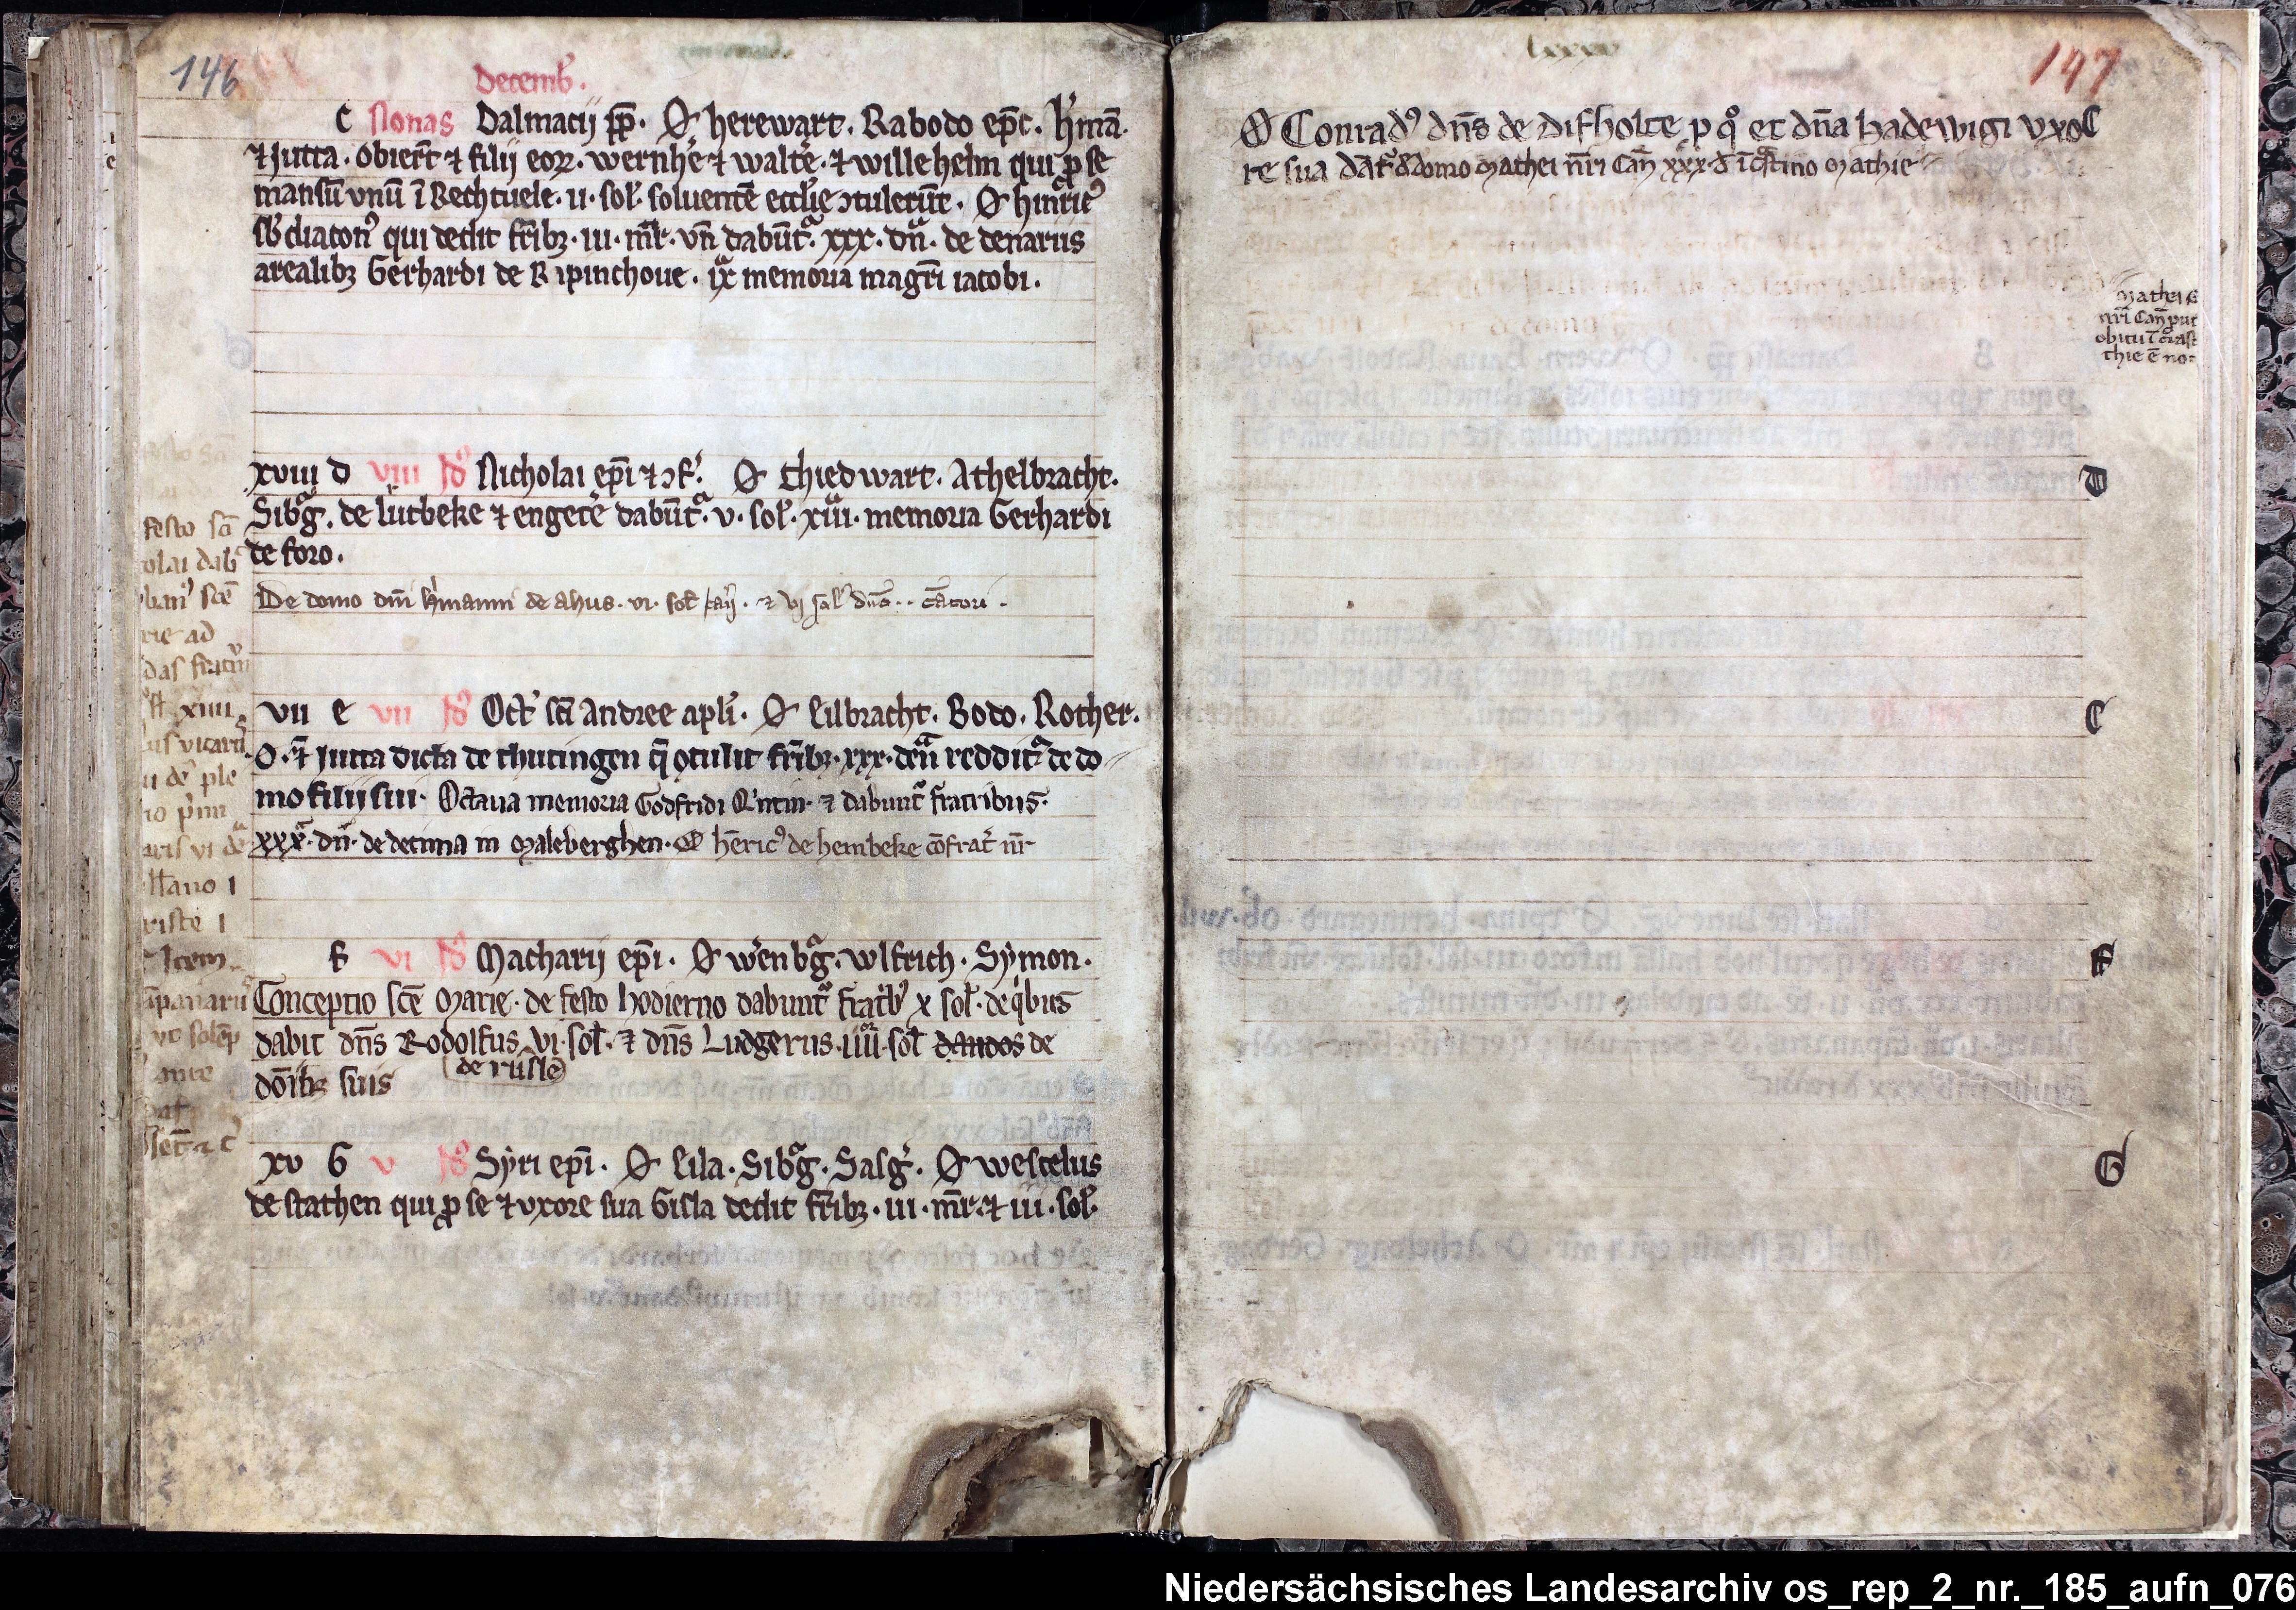 146
Decemb̕.
C Nonas Dalmacij pp̄. O herewart. Rabodo ep̄c. h̕mā.
⁊ Jutta. obier̄t ⁊ filij eoꝝ. wernhe̕ ⁊ walte̕. ⁊ willehelm qui ꝓ se
mansū vnū ī Vechtuele. ii. sol̕. soluentē eccl̕ie ꝯtuler̄ūt. O hinric᷒
sb̕diacon᷒ qui dedit fr̄ibꝫ. iii. mr̄. vn̄ dabūt᷑. xxx. dn̄. de denariis
arealibꝫ Gerhardi de Ripinchoue. ix memoria magr̄i iacobi.
xviii D viii Id᷒ Nicholai ep̄i ⁊ ꝯf̕. O thiedwart. Athelbracht.
Sibg̃. de lutbeke ⁊ engete̕ dabūt᷑. v. sol̕. xiiii. memoria Gerhardi
de foro.
De domo dn̄i h̕manni de ahus. vi. sol̕ can̄. ⁊ vj sol̕ dn̄t.. cātori.
vii E vii Id᷒ Oct̕ sc̄i Andree apl̕i. O Eilbracht. Bodo. Rother.
O. ⁊ Jutta dicta de thutingen q̄ ꝯtulit fr̄ibꝫ. xxx. den̄ reddit᷑ de do
mo filij sui. Octaua memoria Godfridi Q̕ntin. ⁊ dabunt᷑ fratribus.
xxx. dn̄. de decima in Maleberghen. O hēric᷒ de hembeke cōfrat̕ nr̄
F vi Id᷒ Macharij ep̄i. O wēnbg̃. wlfrich. Symon.
Conceptio scē Marie. de festo hodierno dabunt᷑ frat̕b᷒ x sol̕. de q̕bus
dabit dn̄s Rodolfus vi. sol̕. ⁊ dn̄s Ludgerus. iiii. sol̕ dandos de
(de rusle)
dōibꝫ suis
xv G v Id᷒ Syri ep̄i. O Eila. Sibg̃. Salg̕. O wescelus
de stathen qui ꝓ se ⁊ vxore sua Gisla dedit fr̄ibꝫ. iii. mr̄. ⁊ iii. sol̕.
festo sc̄i
olai dab̕
ban᷒ scē
rie ad
das fratru̅
xiiii
us vicarii
ii de̕ ple
io p̕mi
aris vi de̅
llano 1
riste 1
Item
āpanariꝰ
vt solēp
ante
lxxxv
147
O Conrad᷒ dn̄s de Difholte p q᷒ et dn̄a Hadewigi vxo C
re sua dāt᷑ d̕ domo Mathei nr̄i Can̄ xxx. d̕ ī c̕stino Mathie
Mathei
nr̄i Can̄ put
obitu ī c̕ast
thie ē no
D
E
F
G
Niedersächsisches Landesarchiv os_rep_2_nr._185_aufn_076